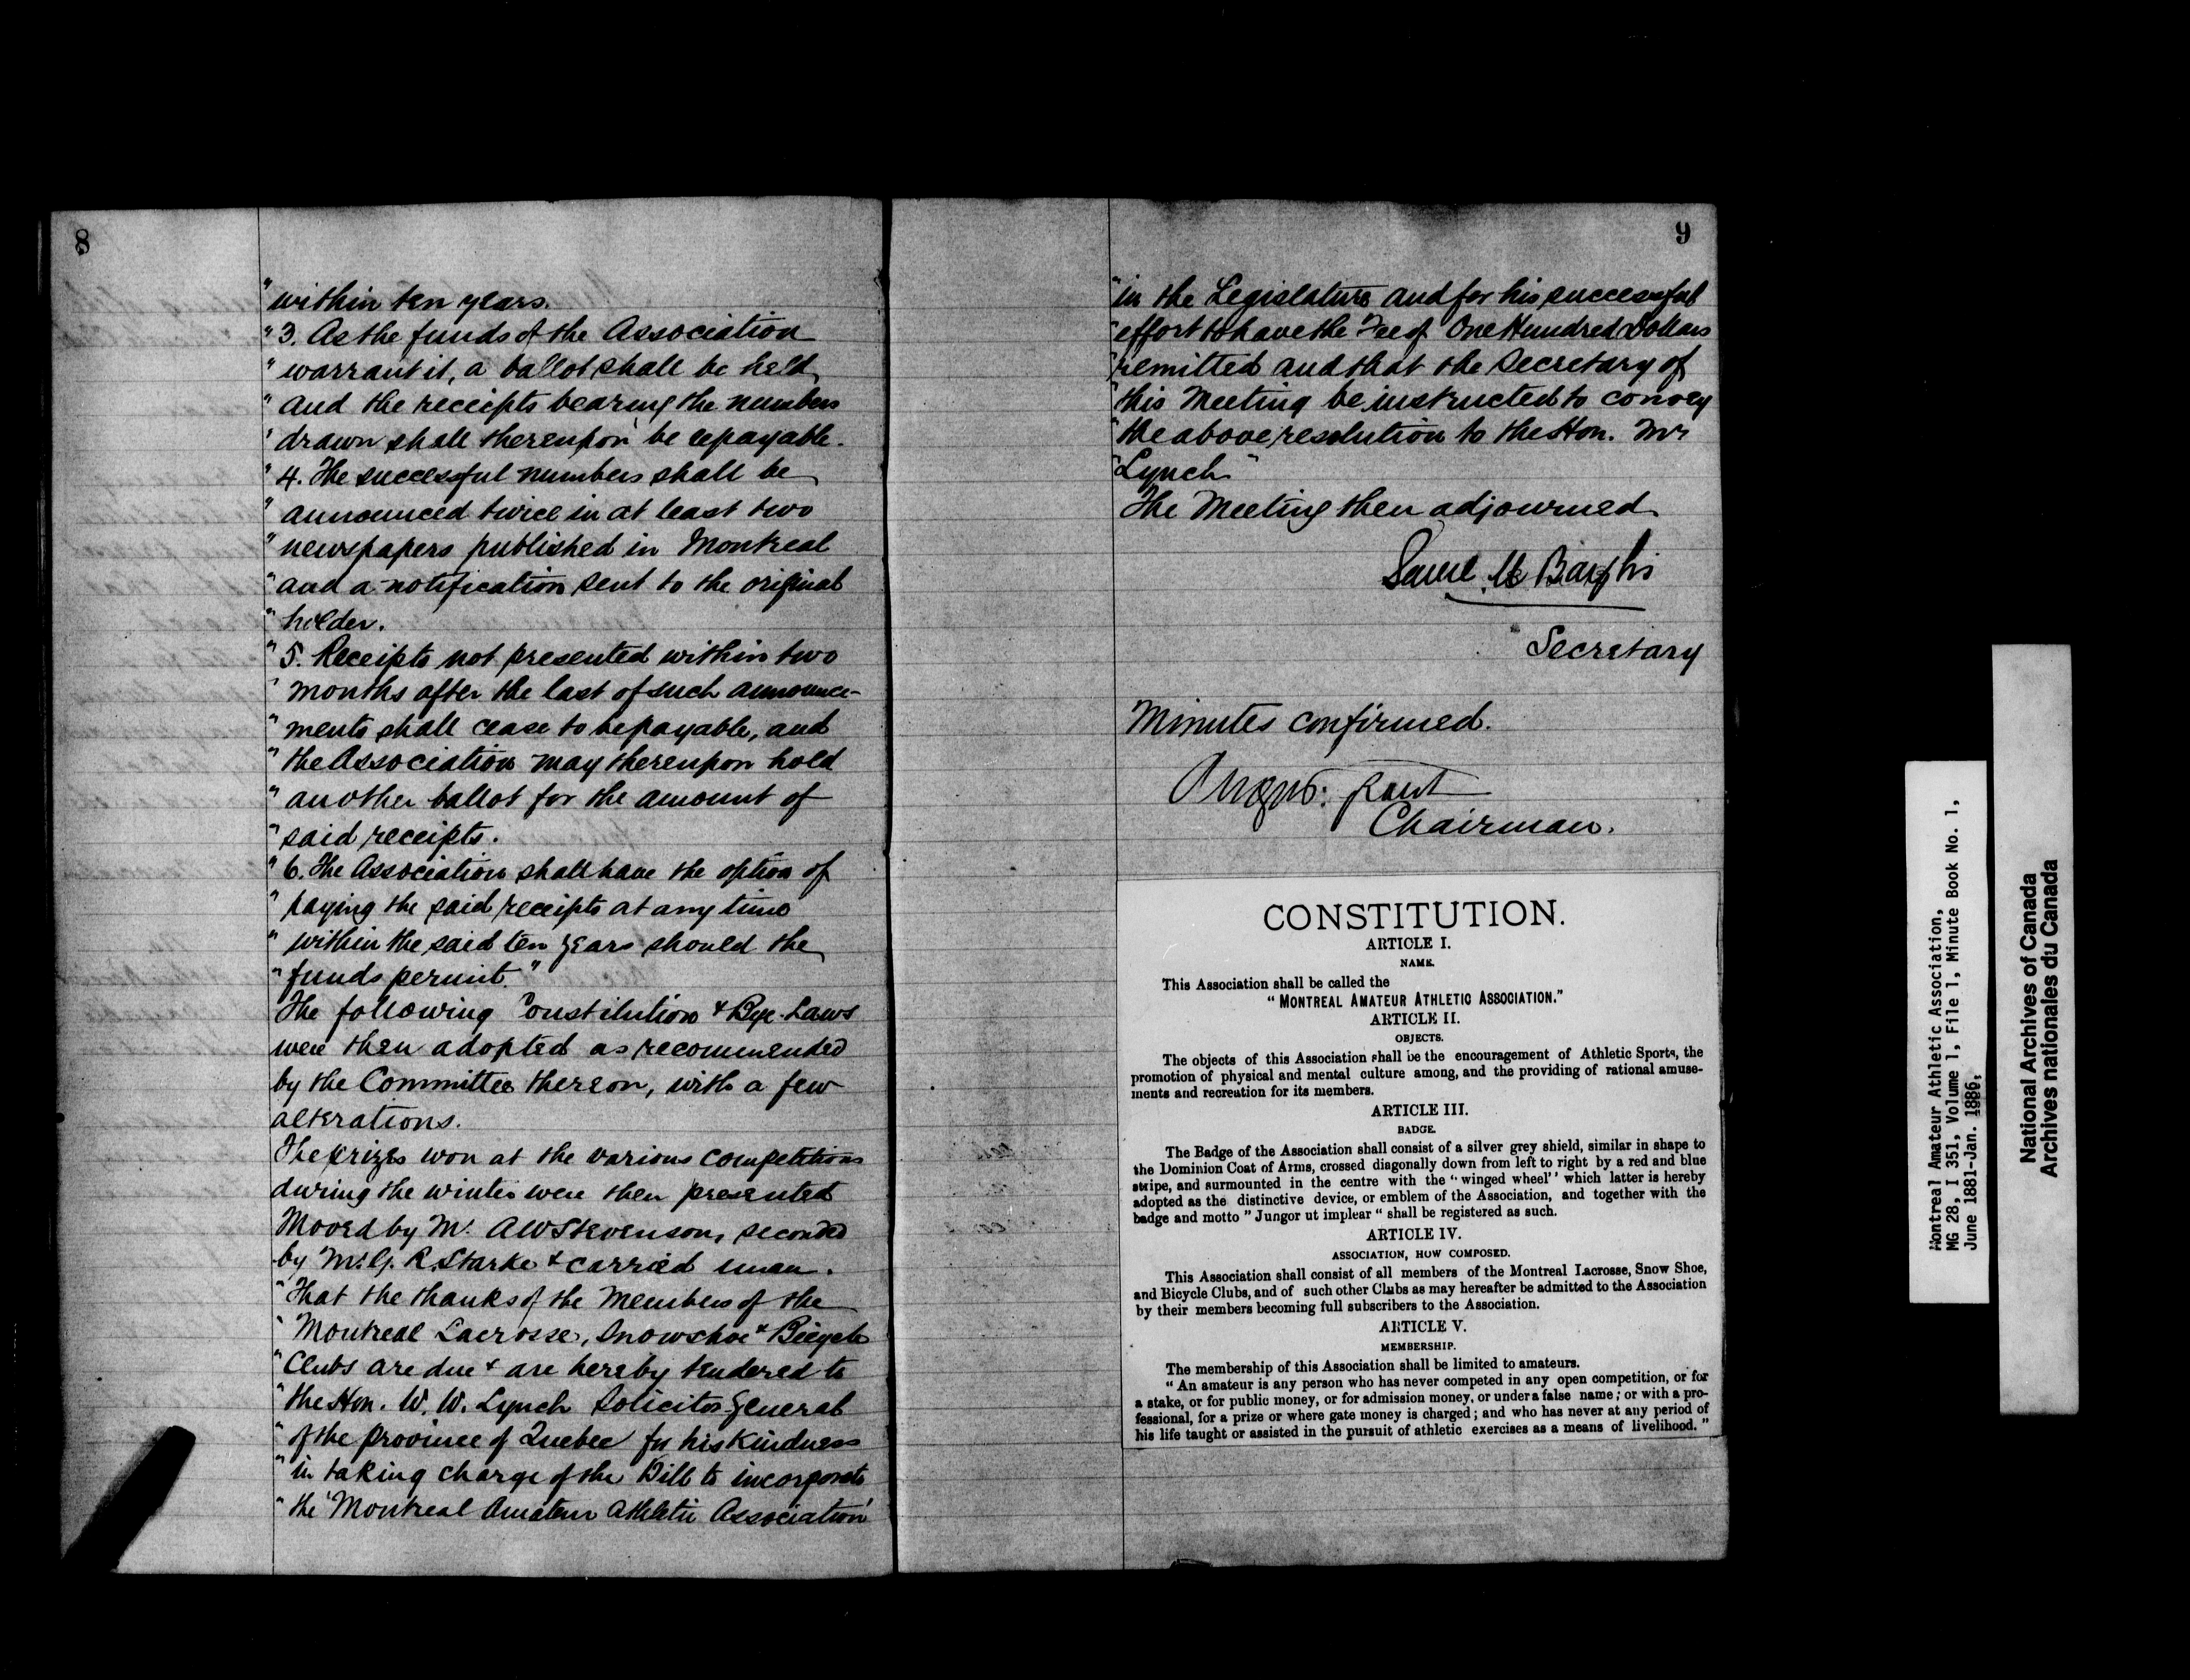 8
" within ten years.
" 3. As the funds of the Association
" warrant it, a ballot shall be held
" and the receipts bearing the numbers
" drawn shall thereupon be repayable.
" 4. The successful numbers shall be
" announced twice in at least two
" newspapers published in Montreal
" and a notification sent to the original
" holder.
" 5. Receipts not presented within two
" months after the last of such announce-
" ments shall cease to be payable, and
" the Association may thereupon hold
" another ballot for the amount of
" said receipts.
" 6. The Association shall have the option of
" paying the said receipts at any time
" within the said ten years should the
" funds permit."
The following Constitution & Bye-Laws
were then adopted as recommended
by the Committee thereon, with a few
alterations.
The prizes won at the various competitions
during the winter were then presented
Moved by Mr. A W Stevenson, seconded
by Mr. G. R. Starke & carried unan.
" That the thanks of the Members of the
" Montreal Lacrosse, Snowshoe & Bicycle
" Clubs are due & are hereby tendered to
" the Hon. W. W. Lynch Solicitor General
" of the province of Quebec for his kindness
" in taking charge of the Bill to incorporate
" the 'Montreal Amateur Athletic Association'
9
" in the Legislature and for his successful
" effort to have the Fee of One Hundred Dollars
" remitted and that the Secretary of
" this Meeting be instructed to convey
" the above resolution to the Hon. Mr
" Lynch"
The Meeting then adjourned
Secretary
Minutes confirmed.
Angus Grant
Chairman.
CONSTITUTION.
ARTICLE I.
NAME.
This Association shall be called the
" MONTREAL AMATEUR ATHLETIC ASSOCIATION."
ARTICLE II.
OBJECTS.
The objects of this Association shall be the encouragement of Athletic Sports, the
promotion of physical and mental culture among, and the providing of rational amuse-
ments and recreation for its members.
ARTICLE III.
BADGE.
The Badge of the Association shall consist of a silver grey shield, similar in shape to
the Dominion Coat of Arms, crossed diagonally down from left to right by a red and blue
stripe, and surmounted in the centre with the "winged wheel" which latter is hereby
adopted as the distinctive device, or emblem of the Association, and together with the
badge and motto " Jungor ut implear " shall be registered as such.
ARTICLE IV.
ASSOCIATION, HOW COMPOSED.
This Association shall consist of all members of the Montreal Lacrosse, Snow Shoe,
and Bicycle Clubs, and of such other Clubs as may hereafter be admitted to the Association
by their members becoming full subscribers to the Association.
ARTICLE V.
MEMBERSHIP.
The membership of this Association shall be limited to amateurs.
" An amateur is any person who has never competed in any open competition, or for
a stake, or for public money, or for admission money, or under a false name; or with a pro-
fessional, for a prize or where gate money is charged; and who has never at any period of
his life taught or assisted in the pursuit of athletic exercises as a means of livelihood."
Montreal Amateur Athletic Association,
MG 28, I 351, Volume 1, File 1, Minute Book No. 1,
June 1881-Jan. 1886,
National Archives of Canada
Archives nationales du Canada